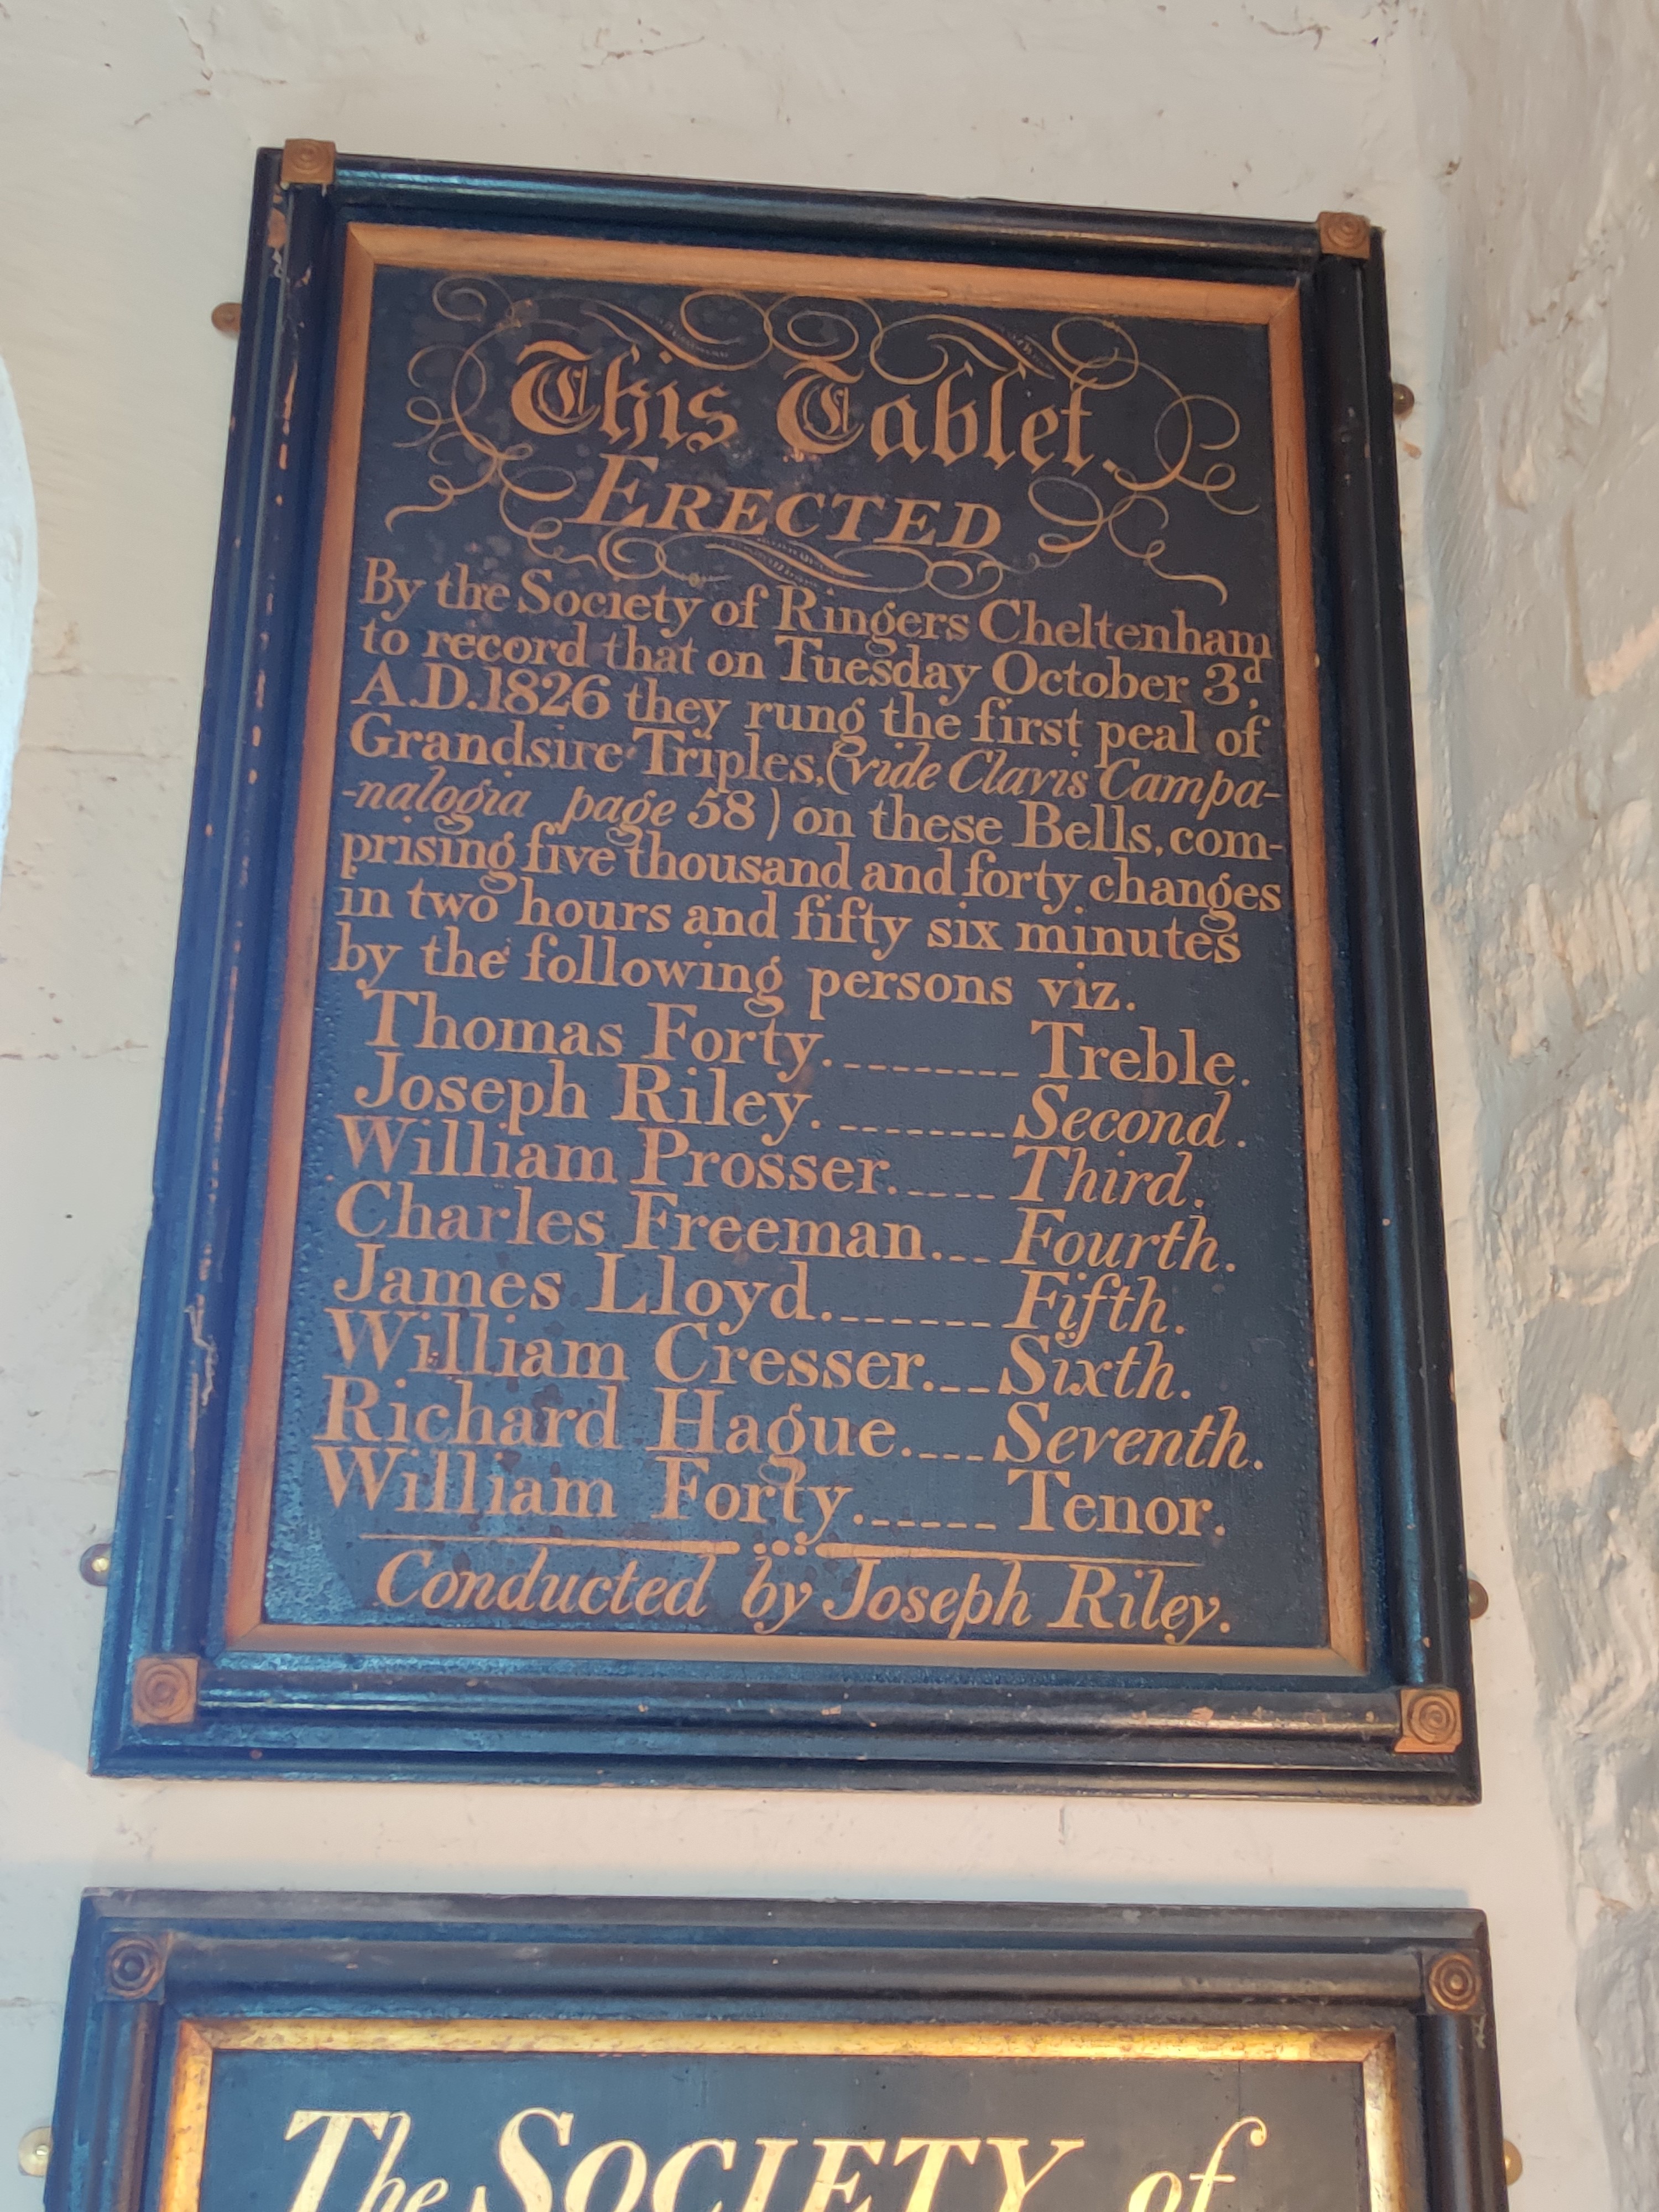 This Tablet.
ERECTED
By the Society of Ringers Cheltenham
to record that on Tuesday October 3d,
A.D.1826 they rung the first peal of
Grandsire Triples,(vide Clavis Campa-
-nalogia page 58) on these Bells, com-
prising five thousand and forty changes
in two hours and fifty six minutes
by the following persons viz.
Thomas Forty.________ Treble.
Joseph Riley.________Second.
William Prosser.____ Third.
Charles Freeman.___Fourth.
James Lloyd.______ Fifth.
William Cresser.___Sixth.
Richard Hague.____Seventh.
William Forty.______ Tenor.
Conducted by Joseph Riley.
The SOCIETY of